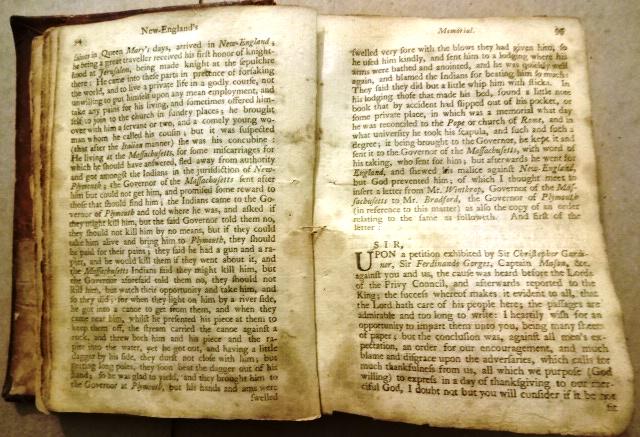 94
New-England's
shiner in Queen Mary's days, arrived in New-England;
he being a great traveller received his first honor of knight-
hood at Jerusalem, being made knight at the sepulchre
there: He came into these parts in pretence of forsaking
the world, and to live a private life in a godly course, not
unwilling to put himself upon any mean employment, and
take any pains for his living, and sometimes offered him-
self to join to the church in sundry places; he brought
over with him a servant or two, and a comely young wo-
man whom he called his cousin; but it was suspected
(that after the Italian manner) she was his concubine:
He living at the Massachusetts, for some miscarriages for
which he should have answered, fled away from authority
and got amongst the Indians in the jurisdiction of New-
Plymouth; the Governor of the Massachusetts sent after
him but could not get him, and promised some reward to
those that should find him; the Indians came to the Go-
vernor of Plymouth and told where he was, and asked if
they might kill him, but the said Governor told them no,
they should not kill him by no means, but if they could
take him alive and bring him to Plymouth, they should
be paid for their pains; they said he had a gun and a ra-
pier, and he would kill them if they went about it, and
the Massachusetts Indians said they might kill him, but
the Governor aforesaid told them no, they should not
kill him, but watch their opportunity and take him, and
so they did; for when they light on him by a river side,
he got into a canoe to get from them, and when they
came near him, whilst he presented his piece at them to
keep them off, the stream carried the canoe against a
rock, and threw both him and his piece and the ra-
pier into the water, yet he got out, and having a little
dagger by his side, they durst not close with him; but
getting long poles, they soon beat the dagger out of his
hand; so he was glad to yield, and they brought him to
the Governor at Plymouth, but his hands and arms were
swelled
Memorial.
95
swelled very sore with the blows they had given him, so
he used him kindly, and sent him to a lodging where his
arms were bathed and anointed, and he was quickly well
again, and blamed the Indians for beating him so much:
They said they did but a little whip him with sticks. In
his lodging those that made his bed, found a little note
book that by accident had slipped out of his pocket, or
some private place, in which was a memorial what day
he was reconciled to the Pope or church of Rome, and in
what university he took his scapula, and such and such a
degree; it being brought to the Governor, he kept it and
sent it to the Governor of the Massachusetts, with word of
his taking, who sent for him; but afterwards he went for
England, and shewed his malice against New-England,
but God prevented him; of which I thought meet to
insert a letter from Mr. Winthrop, Governor of the Mas-
sachusetts to Mr. Bradford, the Governor of Plymouth
(in reference to this matter) as also the copy of an order
relating to the same as followeth. And first of the
letter:
SIR,
UPON a petition exhibited by Sir Christopher Gardi-
ner, Sir Ferdinando Gorges, Captain Mason, &c.
against you and us, the cause was heard before the Lords
of the Privy Council, and afterwards reported to the
King; the success whereof makes it evident to all, that
the Lord hath care of his people here; the passages are
admirable and too long to write: I heartily wish for an
opportunity to impart them unto you, being many sheets
of paper; but the conclusion was, against all men's ex-
pectation, an order for our encouragement, and much
blame and disgrace upon the adversaries, which calls for
much thankfulness from us, all which we purpose (God
willing) to express in a day of thanksgiving to our mer-
ciful God, I doubt not but you will consider if it be not
fit